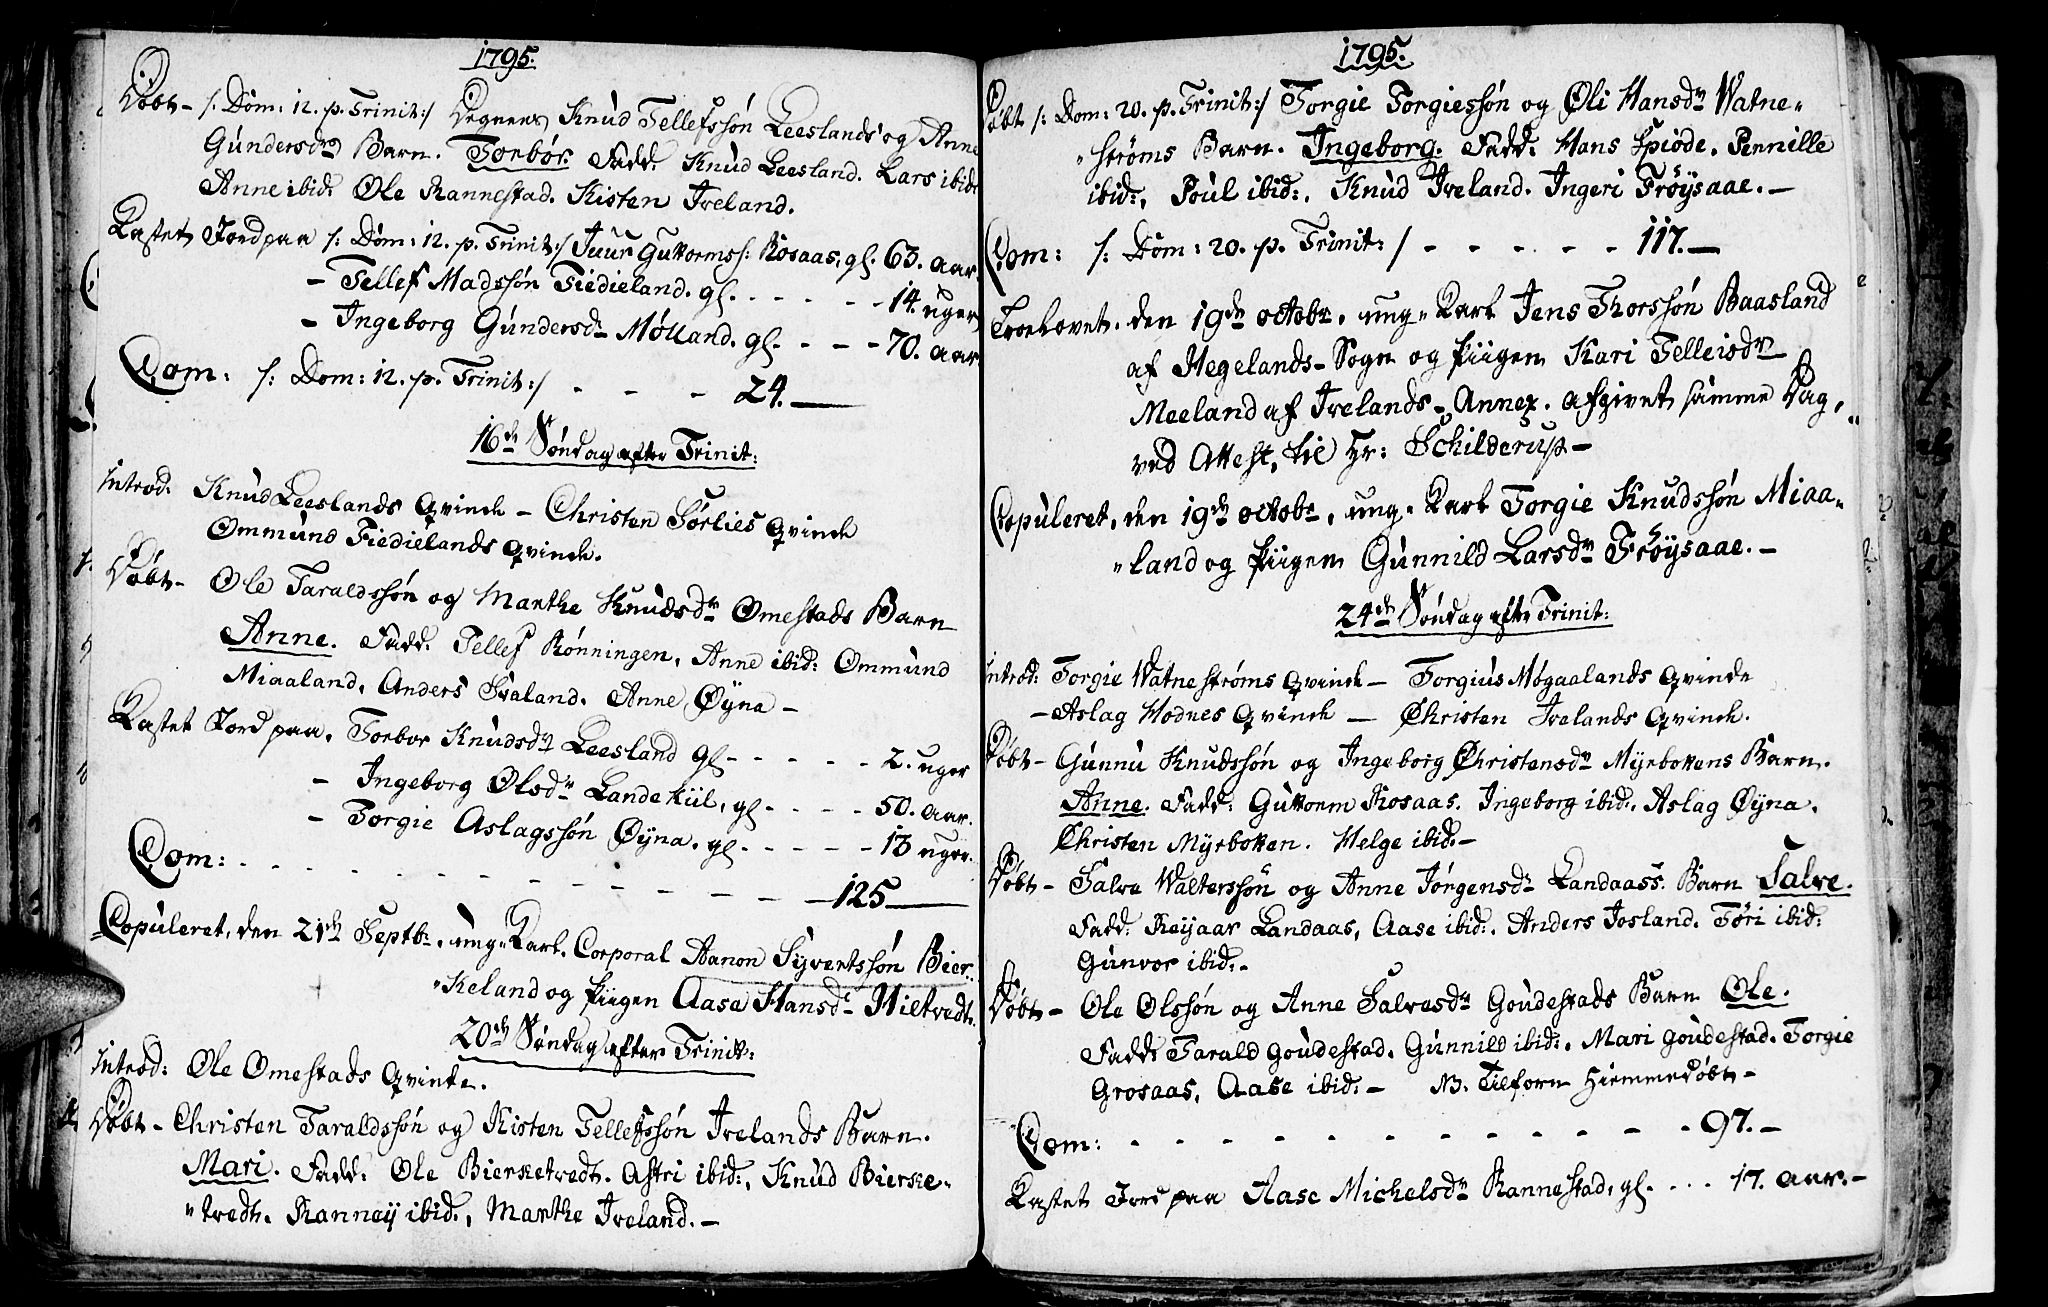 1795.
Døbt - /: Dom: 12. p. Trinit:/ Degnens Knud Tellefssøn Leeslands og Anne
Gundersdrs Barn. Torbør. Fadd. Knud Leesland. Lars ibid:
Anne ibid: Ole Rannestad. Kisten Ireland.
Kastet Jord paa /: Dom: 12. p. Trinit:/ Juur Guttormss: Rosaas, gl. 63. aar.
- Tellef Madssøn Fiedieland. gl. - - - - - 14. uger
- Ingeborg Gundersdr Mølland. gl. - - - 70. aar
Com: /: Dom: 12. p. Trinit:/ - - - 24. -
16de Søndag efter Trinit:
Introd. Knud Leeslands Qvinde - Christen Sørlies Qvinde
Ommund Fiedielands Qvinde.
Døbt - Ole Taraldssøn og Marthe Knudsdr Omestads Barn
Anne. Fadd. Tellef Rønningen, Anne ibid: Ommund
Miaaland, Anders Svaland. Anne Øyna -
Kastet Jord paa. Torbor Knudsdr Leesland gl - - - - - 2. uger
- Ingeborg Olsdr Landekiil, gl - - - - 50. aar.
- Torgie Aslagssøn Øyna. gl - - - - - 13 uger.
Com: - - - - - - - - - - - 125 -
Copuleret, den 21de Septbr. ung Karl. Corporal Aanon Syvertssøn Bier„
„keland og Piigen Aasa Hansdr Hiltvedt.
20de Søndag efter Trinit:
Introd: Ole Omestads Qvinde.
Døbt - Christen Taraldssøn og Kisten Tellefssøn Irelands Barn.
Mari. Fadd: Ole Bierketvedt. Astri ibid:, Knud Bierke„
„tvedt. Ranney ibid:, Marthe Ireland. -
1795.
Døbt /: Dom: 20. p. Trinit:/ Torgie Torgiessøn og Øli Hansdr Watne„
„strøms Barn. Ingeborg. Fadd: Hans Kpiøde. Pernille
ibid:, Poul ibid:, Knud Ireland. Ingeri Frøysaae. -
Com: /: Dom: 20. p. Trinit:/ - - - - - 117. -
Troelovet. den 19de octobr. ung Karl Jens Thorssøn Baasland
af Hegelands-Sogn og Piigen Kari Telleisdr
Meeland af Irelands-Annex. afgivet samme Dag,
ved Attest, til Hr: Schilderup -
Copuleret, den 19de octobr, ung Karl Torgie Knudssøn Miaa„
„land og Piigen Gunnild Larsdr Frøysaae. -
24de Søndag efter Trinit:
Introd: Torgie Watnestrøms Qvinde - Torgius Møgaalands Qvinde
- Aslag Hodnes Qvinde - Christen Irelands Qvinde.
Døbt - Gunnu Knudssøn og Ingeborg Christensdr Myrbokens Barn.
Anne. Fadd: Guttorm Rosaas. Ingeborg ibid:, Aslag Øyna.
Christen Myrboken. Helge ibid. -
Døbt - Salve Walterssøn og Anne Jørgensdr Landaass. Barn Salve.
Fadd: Reijaar Landaas, Aase ibid:. Anders Josland. Tøri ibid:
Gunvor ibid: -
Døbt - Ole Olssøn og Anne Salvesdr Goudestads Barn Ole.
Fadd: Tarald Goudestad. Gunnild ibid:. Mari Goudestad. Torgie
Grosaas, Aase ibid: - NB. Tilforn hiemmedøbt -
Com: - - - - - - - - - - - 97. -
Kastet Jord paa Aase Michelsdr Rannestad, gl. - - - 17. aar. -